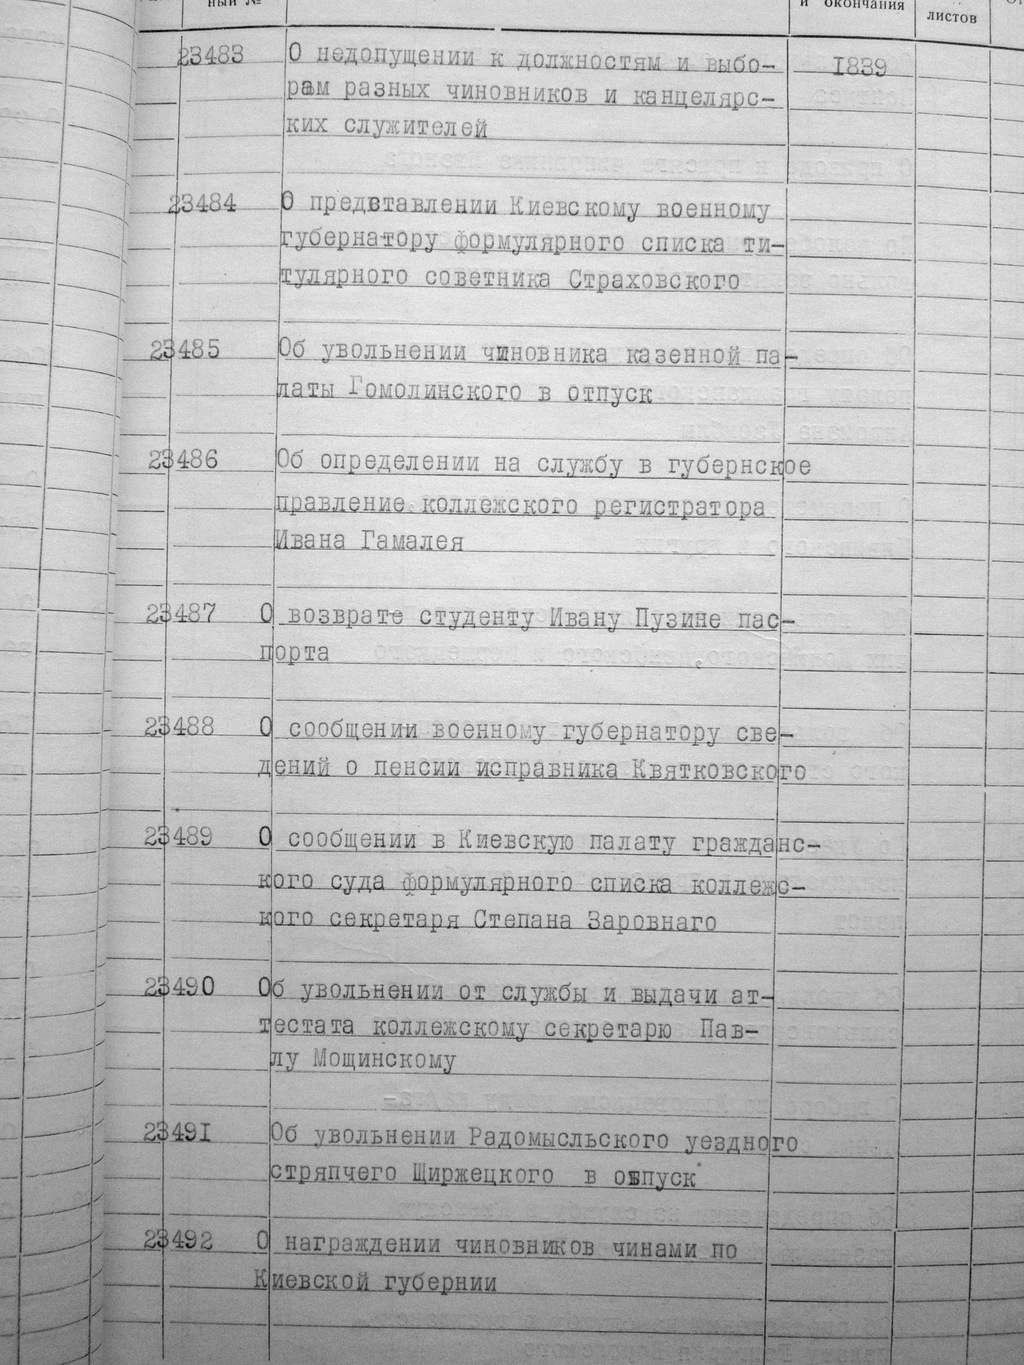 ный №
и окончания
листов
23483 О недопущении к должностям и выбо- 1839
рам разных чиновников и канцелярс-
ких служителей
23484 О предвтавлении Киевскому военному
губернатору формулярного списка ти-
тулярного советника Страховского
23485 Об увольнении чиновника казенной па-
латы Гомолинского в отпуск
23486 Об определении на службу в губернское
правление коллежского регистратора
Ивана Гамалея
23487 О возврате студенту Ивану Пузине пас-
порта
23488 О сообщении военному губернатору све-
дений о пенсии исправника Квятковского
23489 О сообщении в Киевскую палату гражданс-
кого суда формулярного списка коллежс-
кого секретаря Степана Заровнаго
23490 Об увольнении от службы и выдачи ат-
тестата коллежскому секретарю Пав-
лу Мощинскому
23491 Об увольнении Радомысльского уездного
стряпчего Щиржецкого в отпуск
23492 О награждении чиновников чинами по
Киевской губернии